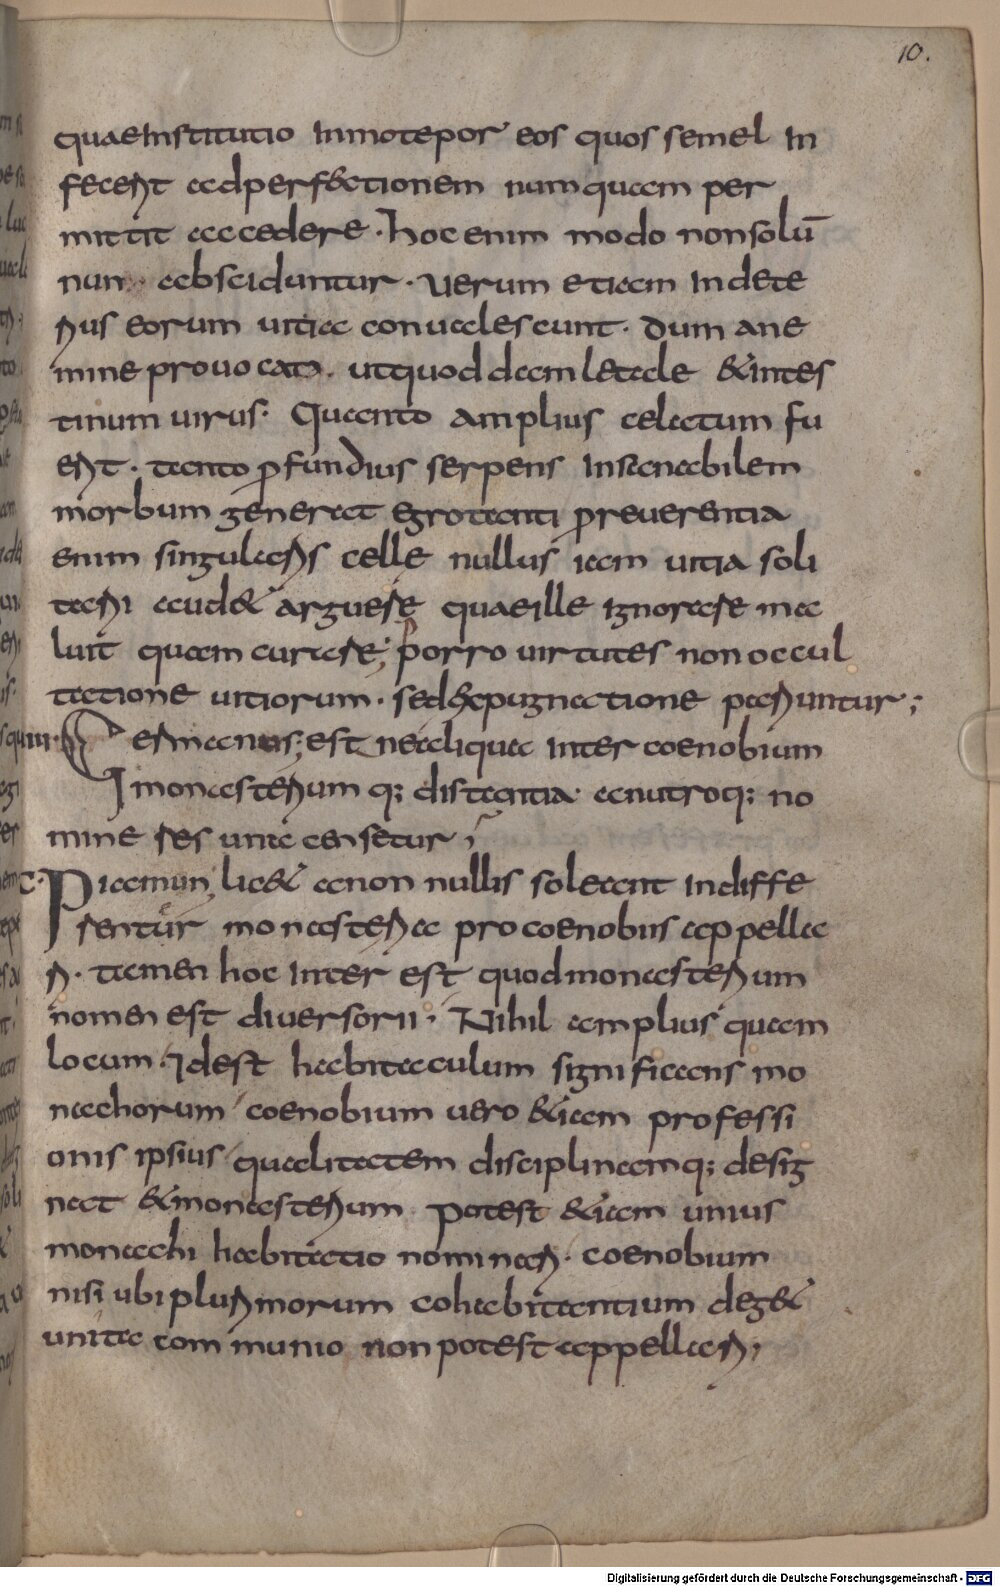 10.
quae institutio in ino tepor eos quos semel in
fecerit ad perfectionem numquam per
mittit accedere. hoc enim modo non solū
nun absciduntur. uerum etiam in dete
rius eorum uitia conualescunt. dum a ne
mine prouocati. ut quoddam letale & intes
tinum uirus. Quanto amplius celatum fu
erit. tanto profundius serpens insanabilem
morbum generat egrotanti p reuerentia
enim singularis celle nullus iam uitia soli
tarii aud& arguere quae ille ignorare ma
luit quam curare; porro uirtutes non occul
tatione uitiorum. sed repugnatione pariuntur;
Germanus; est ne aliqua inter coenobium
monasteriumq; distantia. an utroq; no
mine res una censetur;
Piamun lic& a non nullis soleant indiffe
renter monasteria pro coenobiis appella
ri. tamen hoc inter est quod monasterium
nomen est diuersorii. Nihil amplius quam
locum. idest habitaculum significans mo
nachorum coenobium uero &iam professi
onis ipsius qualitatem disciplinamq; desig
nat & monasterium potest &iam unius
monachi habitatio nominari. coenobium
nisi ubi plurimorum cohabitantium deg&
unita communio non potest appellari;
Digitalisierung gefördert durch die Deutsche Forschungsgemeinschaft - DFG